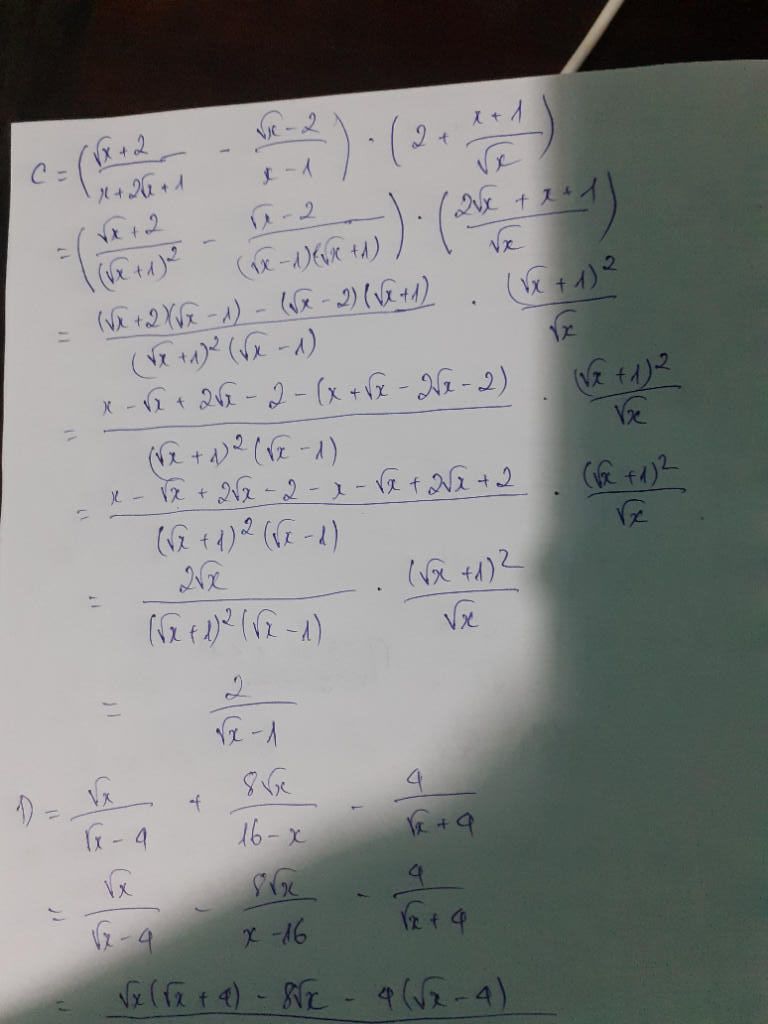 C = ( (√x + 2)/(x + 2√x + 1) − (√x − 2)/(x − 1) ) · ( 2 + (x + 1)/√x )
= ( (√x + 2)/(√x + 1)² − (√x − 2)/((√x − 1)(√x + 1)) ) · ( (2√x + x + 1)/√x )
= ((√x + 2)(√x − 1) − (√x − 2)(√x + 1))/((√x + 1)² (√x − 1)) · (√x + 1)²/√x
= (x − √x + 2√x − 2 − (x + √x − 2√x − 2))/((√x + 1)² (√x − 1)) · (√x + 1)²/√x
= (x − √x + 2√x − 2 − x − √x + 2√x + 2)/((√x + 1)² (√x − 1)) · (√x + 1)²/√x
= 2√x/((√x + 1)² (√x − 1)) · (√x + 1)²/√x
= 2/(√x − 1)
D = √x/(√x − 4) + 8√x/(16 − x) − 4/(√x + 4)
= √x/(√x − 4) − 8√x/(x − 16) − 4/(√x + 4)
= √x(√x + 4) − 8√x − 4(√x − 4)